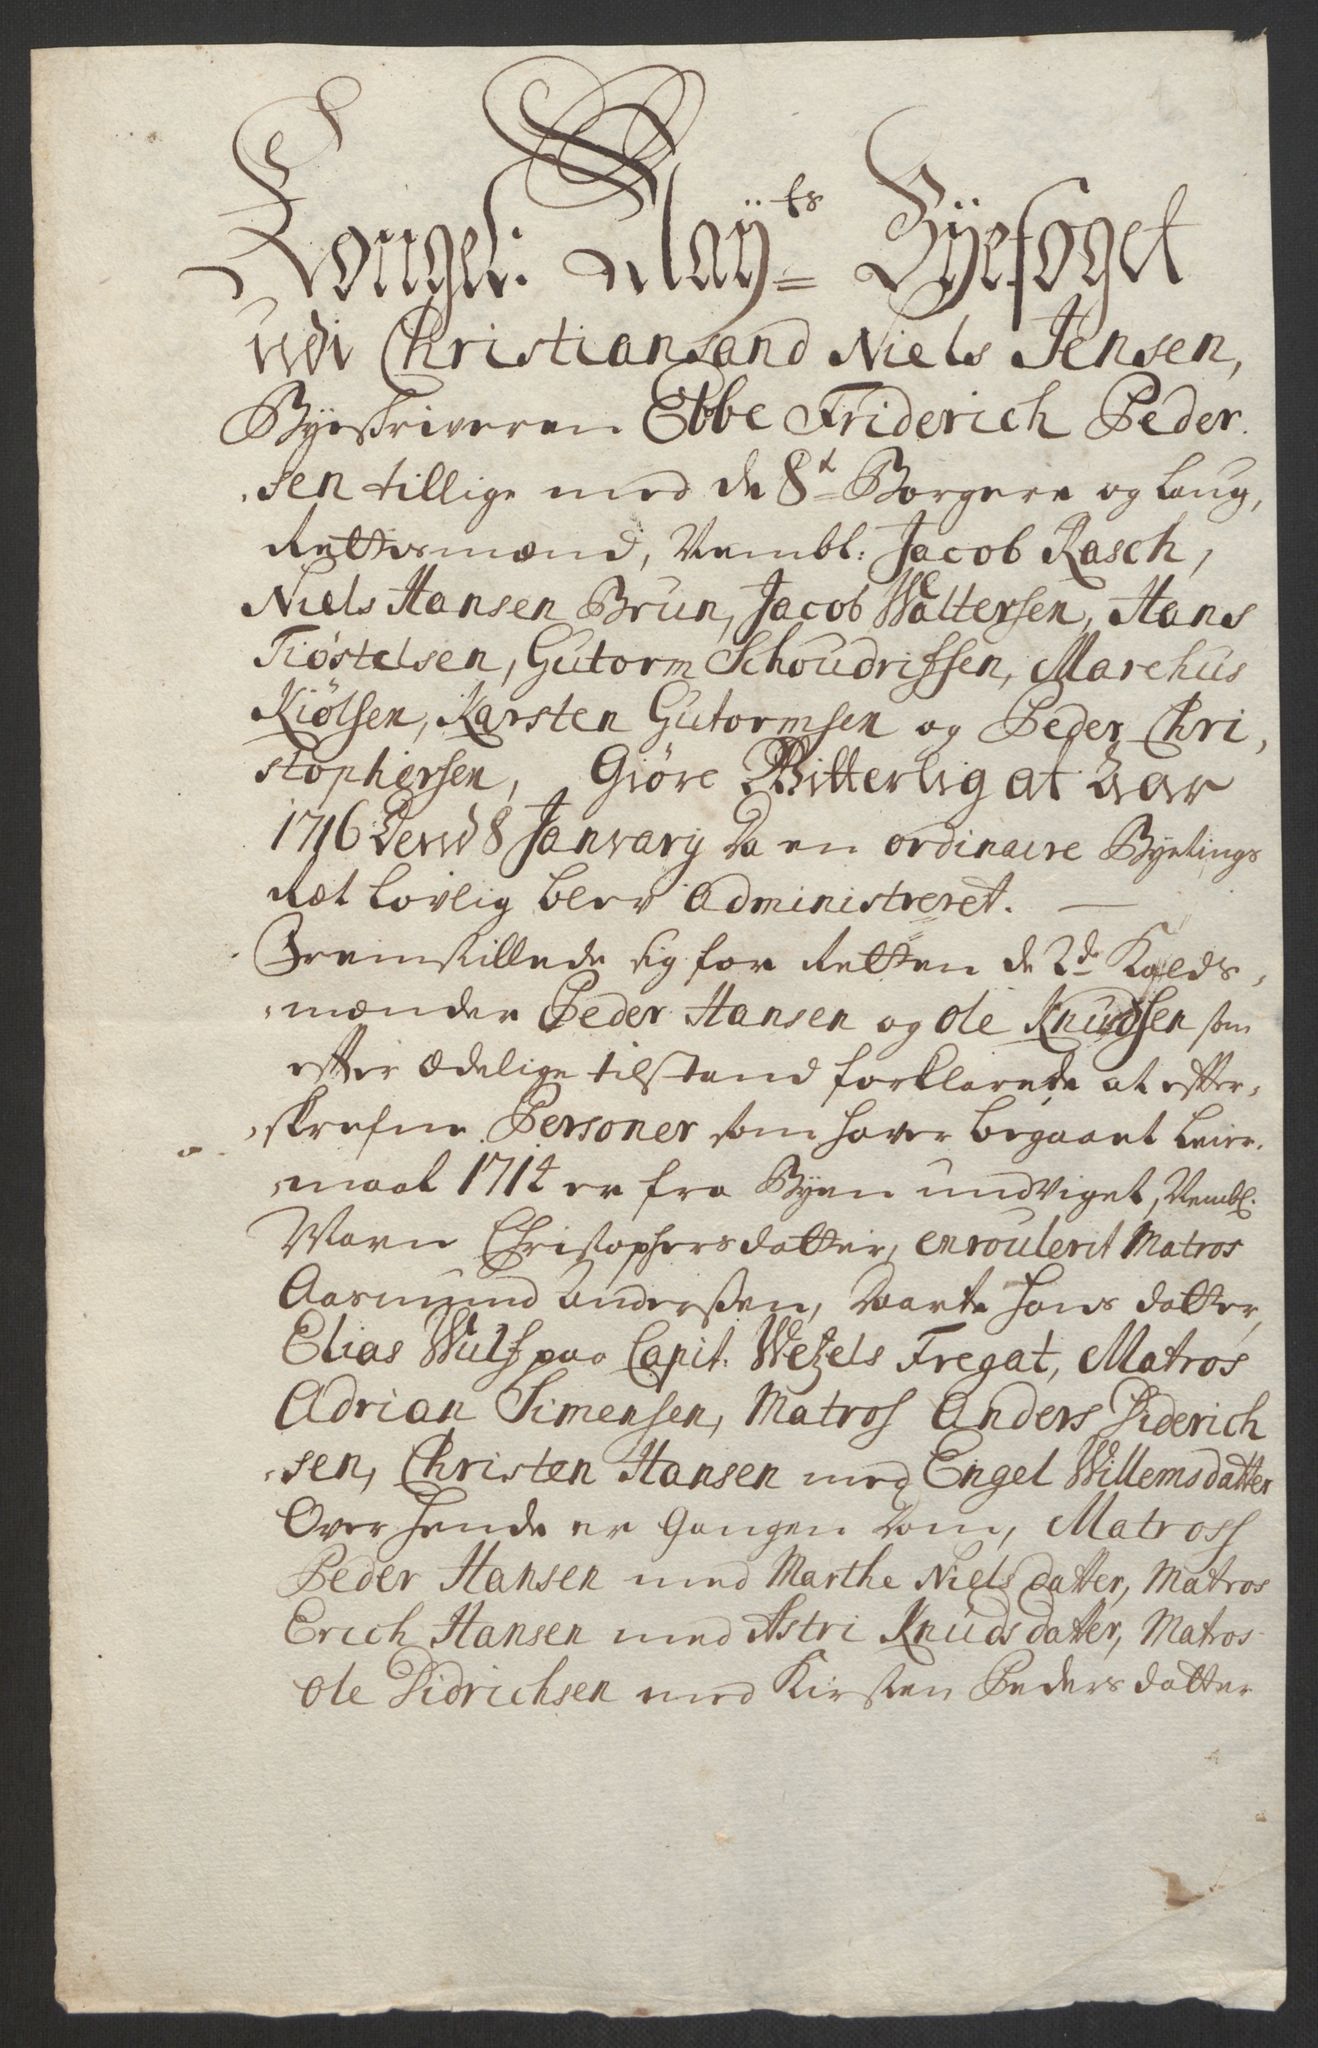 Kongel: Mayts= Byefoget
udi Christiansand Niels Jensen,
Byeskriveren Ebbe Friderich Peder
sen tillige med de 8t= Borgere og Laug,
Rettesmænd, Nembl: Jacob Rasch,
Niels Hansen Brun, Jacob Woltersen, Hans
Tiøstelsen, Gutorm Schoudrifsen, Marchus
Kiølsen, Karsten Gutormsen og Peder Chri,
stophersen, Giøre Witterlig at Aar
1716 Dend 8 Janvary Da en ordinaire Byetings
Ræt Lovlig blev Administreret. —
Fremstillede sig for Retten de 2de Kalds-
mænder Peder Hansen og Ole Knudsen som
effter Ædelige tilstand forklarede at effter-
skrefne Personer som haver begaaet Leier-
maal 1714 er fra Byen undviget, Nembl.
Maren Christophersdatter, enroulerit Matros
Aasmund Anderssen, Maarte Hans datter,
Elias Wulf paa Capit. Wetzels Fregat, Matros
Adrian Simensen, Matros Anders Diderich
-sen, Christen Hansen med Engel Willemsdatter
Over hende er Gangen Dom, Matross
Peder Hansen med Marthe Niels datter, Matros
Erich Hansen med Astri Knuds datter, Matros
Ole Didrichsen med Kirsten Peders datter